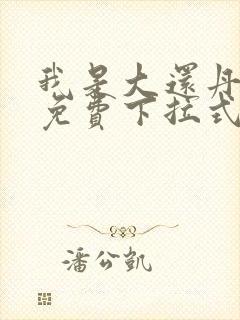 我是大還丹
免費下拉式
潘公凱